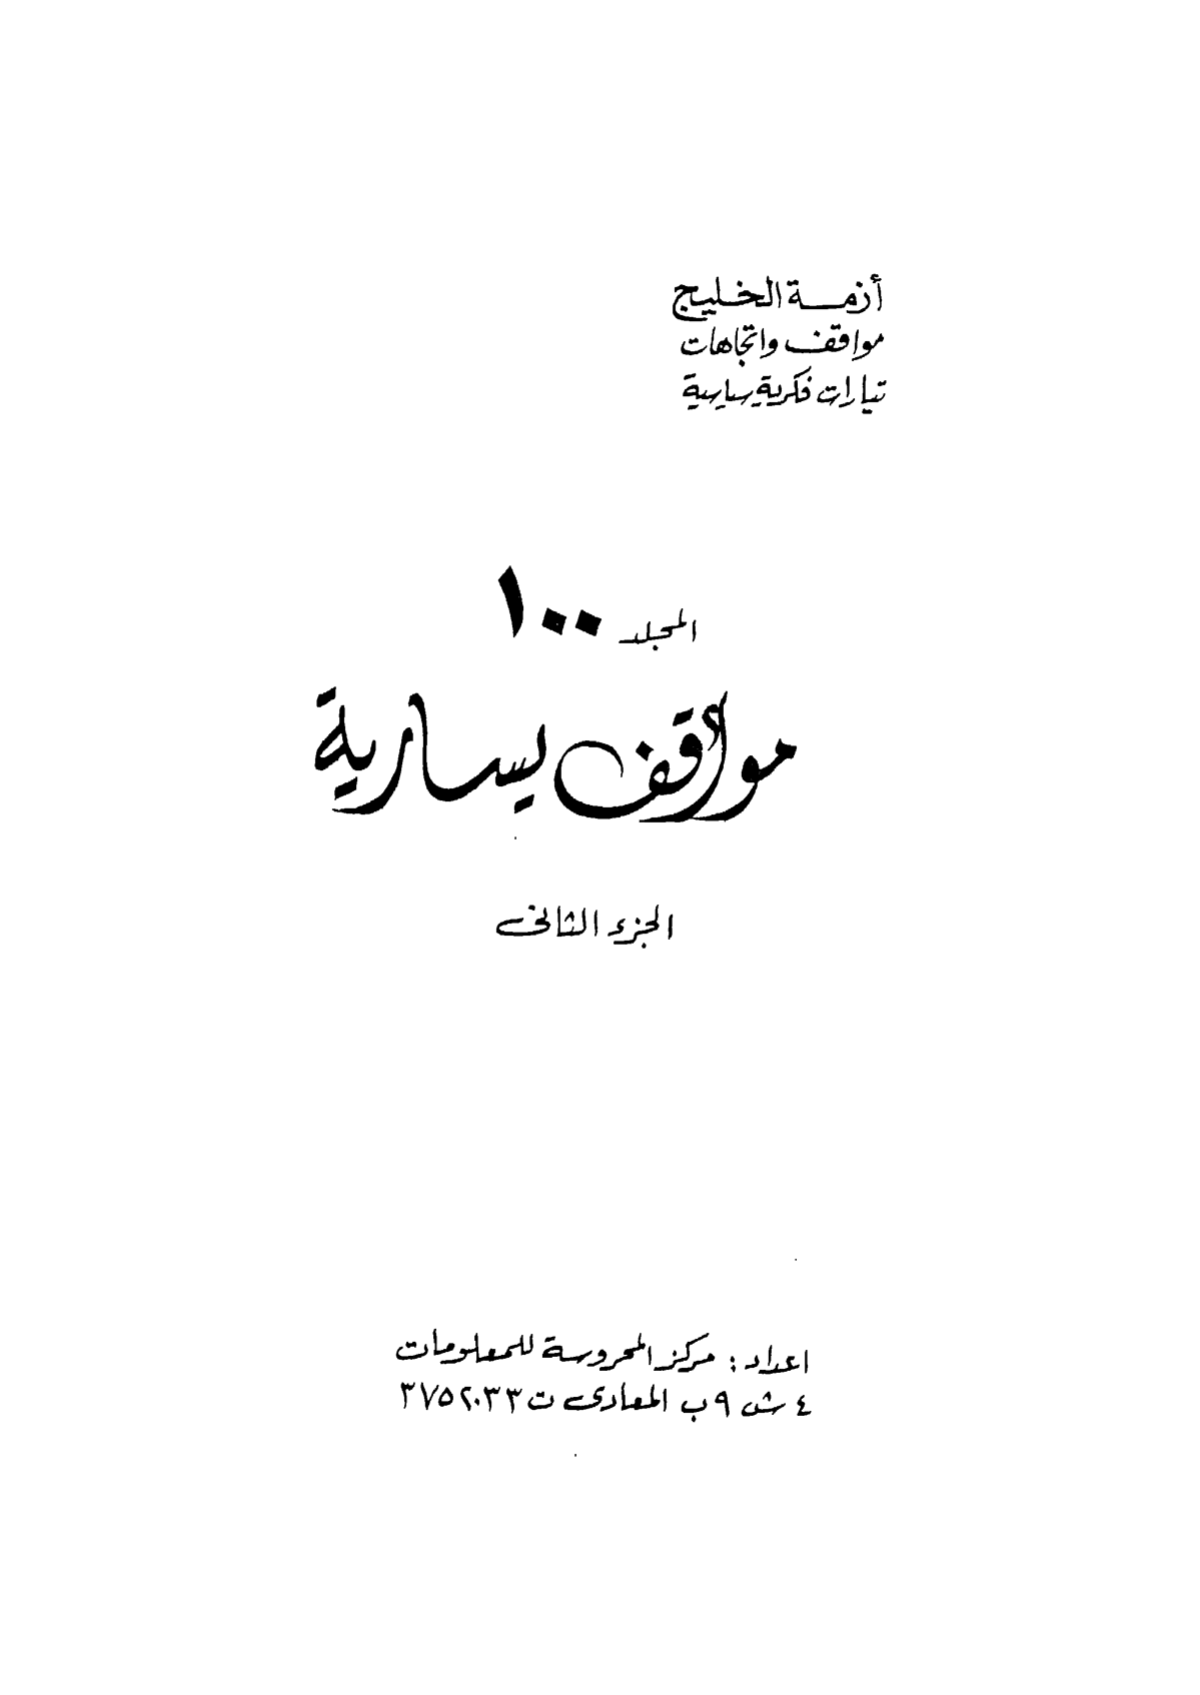 أزمة الخليج
مواقف واتجاهات
تيارات فكرية سياسية
المجلد ١٠٠
مواقف يسارية
الجزء الثانى
اعداد : مركز المحروسة للمعلومات
٤ ش ٩ ب المعادى ت ٣٧٥٢٠٣٣